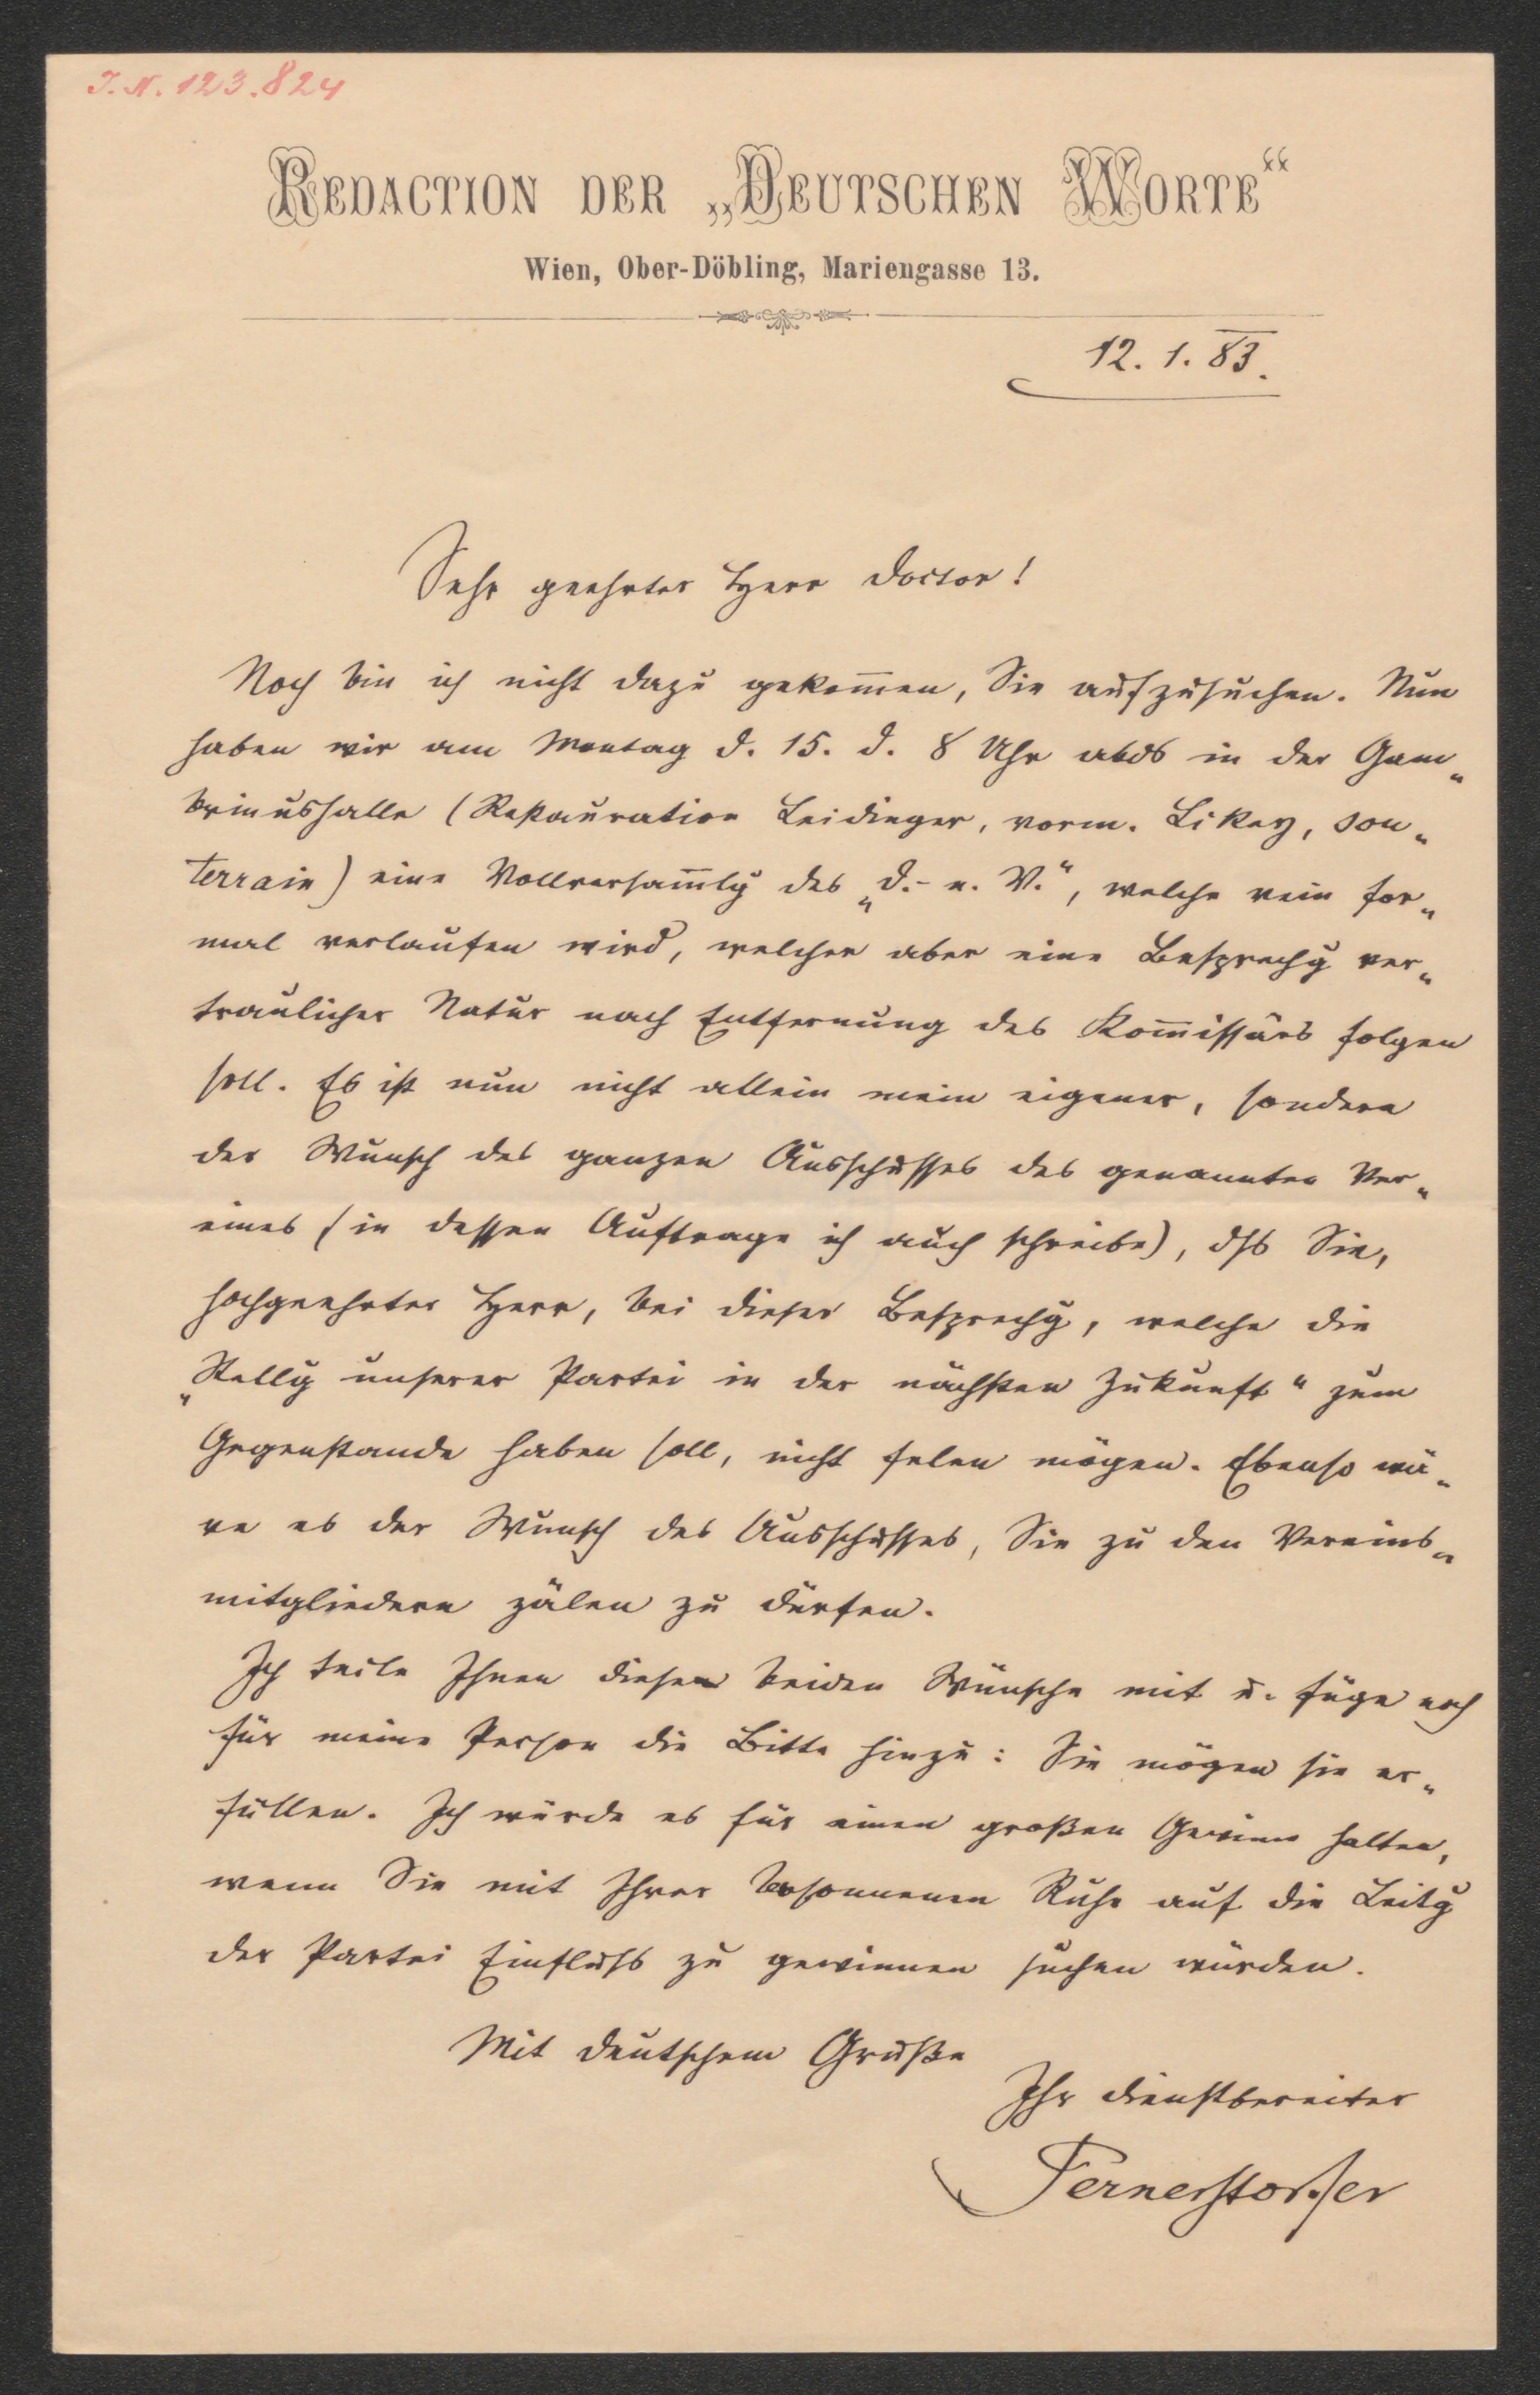 J. N. 123.824
REDACTION DER „DEUTSCHEN WORTE“
Wien, Ober-Döbling, Mariengasse 13.
12. 1. 83.
Sehr geehrter Herr Doctor!
Noch bin ich nicht dazu gekom̅en, Sie aufzusuchen. Nun
haben wir am Montag d. 15. d. 8 Uhr abds in der Gam„
brinushalle (Restauration Leidinger, vorm. Likey, sou„
terrain) eine Vollversam̅lg des „d.-n. V.“, welche rein for„
mal verlaufen wird, welcher aber eine Besprechg ver„
traulicher Natur nach Entfernung des Kom̅issärs folgen
soll. Es ist nun nicht allein mein eigener, sondern
der Wunsch des ganzen Ausschusses des genannten Ver„
eines (in dessen Auftrage ich auch schreibe), dſs Sie,
hochgeehrter Herr, bei dieser Besprechg, welche die
„Stellg unserer Partei in der nächsten Zukunft“ zum
Gegenstande haben soll, nicht felen mögen. Ebenso wä„
re es der Wunsch des Ausschusses, Sie zu den Vereins„
mitgliedern zälen zu dürfen.
Ich teile Ihnen diese beiden Wünsche mit u. füge noch
für meine Person die Bitte hinzu: Sie mögen sie er„
füllen. Ich würde es für einen großen Gewinn halten,
wenn Sie mit Ihrer besonnenen Ruhe auf die Leitg
der Partei Einfluſs zu gewinnen suchen würden.
Mit deutschem Gruße
Ihr dienstbereiter
Pernerstorfer